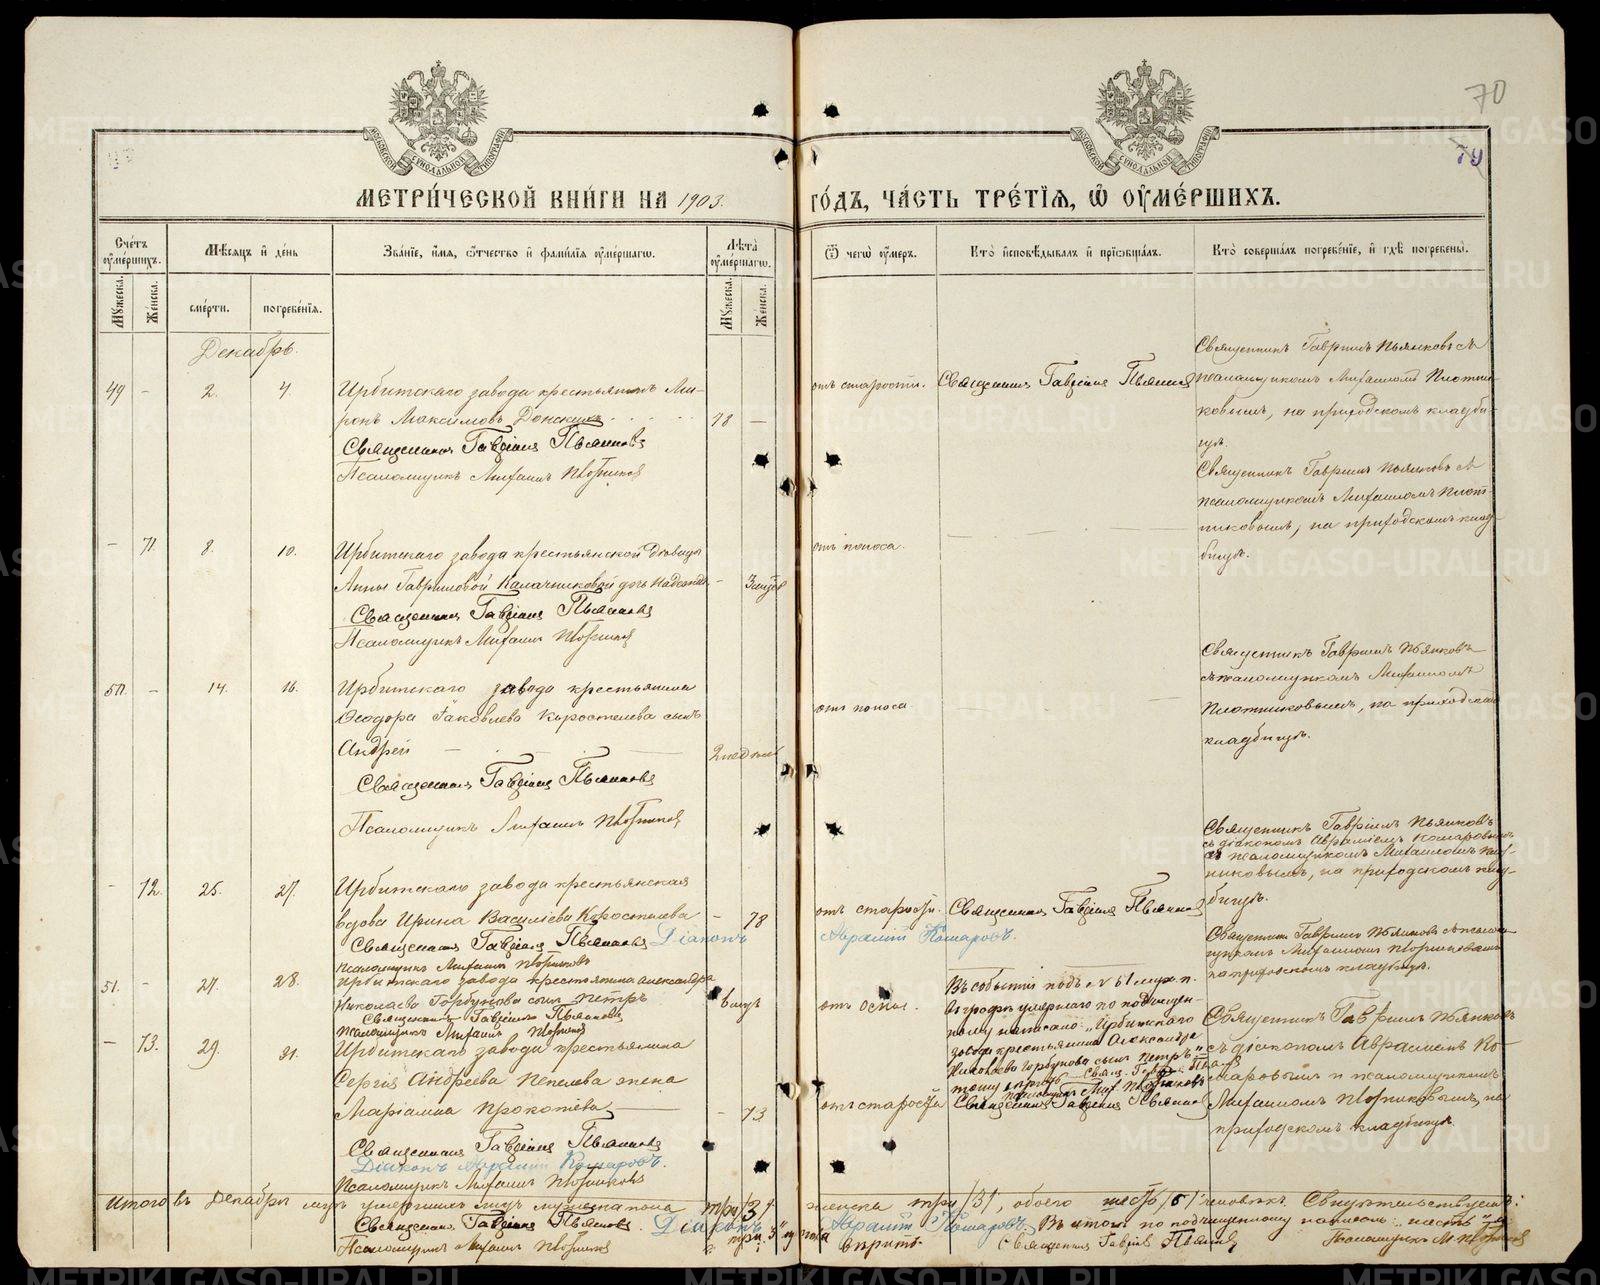 70
79
МОСКОВСКОЙ СѴНОДАЛЬНОЙ ТИПОГРАФІИ
МЕТРИ́ЧЕСКОЙ КНИ́ГИ НА 1903.
ГО́ДЪ, ЧА́СТЬ ТРЕ́ТІѦ, Ѡ ОУМЕ́РШИХЪ.
Сче́тъ оуме́ршихъ.
Мꙋжеска.
Же́нска.
Мѣ́сяцъ и҆ де́нь
сме́рти.
погребе́нїѧ.
Зва́нїе, и҆́мѧ, ѻ҆́тчество и҆ фами́лїѧ оуме́ршагѡ.
Лѣ́та оуме́ршагѡ.
Мꙋжеска.
Же́нска.
Ѿ чегѡ̀ оу́меръ.
Кто̀ и҆сповѣ́дывалъ и҆ прїѡбща́лъ.
Кто̀ соверша́лъ погребе́нїе, и҆ гдѣ̀ погребены̀.
Декабрь.
49 – 2. 4.
Ирбитскаго завода крестьянинъ Ми-
ронъ Максимовъ Донскихъ
78 –
Священникъ Гавріилъ Пьянковъ
Псаломщикъ Михаилъ Плотниковъ
отъ старости.
Священникъ Гавріилъ Пьянковъ
Священникъ Гавріилъ Пьянковъ съ
псаломщикомъ Михаиломъ Плотни-
ковымъ, на приходскомъ кладби-
щѣ.
– 71. 8. 10.
Ирбитскаго завода крестьянской дѣвицы
Анны Гавріиловой Калачниковой дочь Надежда
Священникъ Гавріилъ Пьянковъ
Псаломщикъ Михаилъ Плотниковъ
отъ поноса.
Священникъ Гавріилъ Пьянковъ съ
псаломщикомъ Михаиломъ Плот-
никовымъ, на приходскомъ клад-
бищѣ.
50. – 14. 16.
Ирбитскаго завода крестьянина
Ѳеодора Яковлева Коростелева сынъ
Андрей
2 недѣли
Священникъ Гавріилъ Пьянковъ
Псаломщикъ Михаилъ Плотниковъ
отъ поноса.
Священникъ Гавріилъ Пьянковъ
съ псаломщикомъ Михаиломъ
Плотниковымъ, на приходскомъ
кладбищѣ.
– 72. 25. 27.
Ирбитскаго завода крестьянская
вдова Ирина Васильева Коростелева
– 78
Священникъ Гавріилъ Пьянковъ Діаконъ
Псаломщикъ Михаилъ Плотниковъ
отъ старости.
Священникъ Гавріилъ Пьянковъ
Авраамій Комаровъ.
Священникъ Гавріилъ Пьянковъ
съ діакономъ Авраміемъ Комаровымъ
и псаломщикомъ Михаиломъ Плот-
никовымъ, на приходскомъ клад-
бищѣ.
51. – 27. 28.
Ирбитскаго завода крестьянина Александра
Николаева Горбунова сынъ Петръ
Священникъ Гавріилъ Пьянковъ
Псаломщикъ Михаилъ Плотниковъ
отъ оспы.
Въ событіи подъ № 51 муж. п.
въ графѣ умершаго по подчищен-
ному написано: „Ирбитскаго
завода крестьянина Александра
Николаева Горбунова сынъ Петръ"
Священникъ Гавріилъ Пьянковъ съ псалом-
щикомъ Михаиломъ Плотниковымъ
на приходскомъ кладбищѣ.
– 73. 29. 31.
Ирбитскаго завода крестьянина
Сергія Андреева Пепелева жена
Маріамна Прокопіева
– 73
Священникъ Гавріилъ Пьянковъ
Діаконъ Авраамій Комаровъ.
Псаломщикъ Михаилъ Плотниковъ
отъ старости
Священникъ Гавріилъ Пьянковъ
Священникъ Гавріилъ Пьянковъ
съ діакономъ Авраміемъ Ко-
маровымъ и псаломщикомъ
Михаиломъ Плотниковымъ, на
приходскомъ кладбищѣ.
Итого въ Декабрѣ умершихъ мужеска пола три /3/, женска три /3/, обоего шесть /6/ человѣкъ. Свидѣтельствуемъ:
Священникъ Гавріилъ Пьянковъ. Діаконъ Авраамій Комаровъ. Въ итогѣ по подчищенному написано „шесть"
Псаломщикъ Михаилъ Плотниковъ
Священникъ Гавріилъ Пьянковъ
Псаломщикъ М. Плотниковъ
METRIKI.GASO-URAL.RU